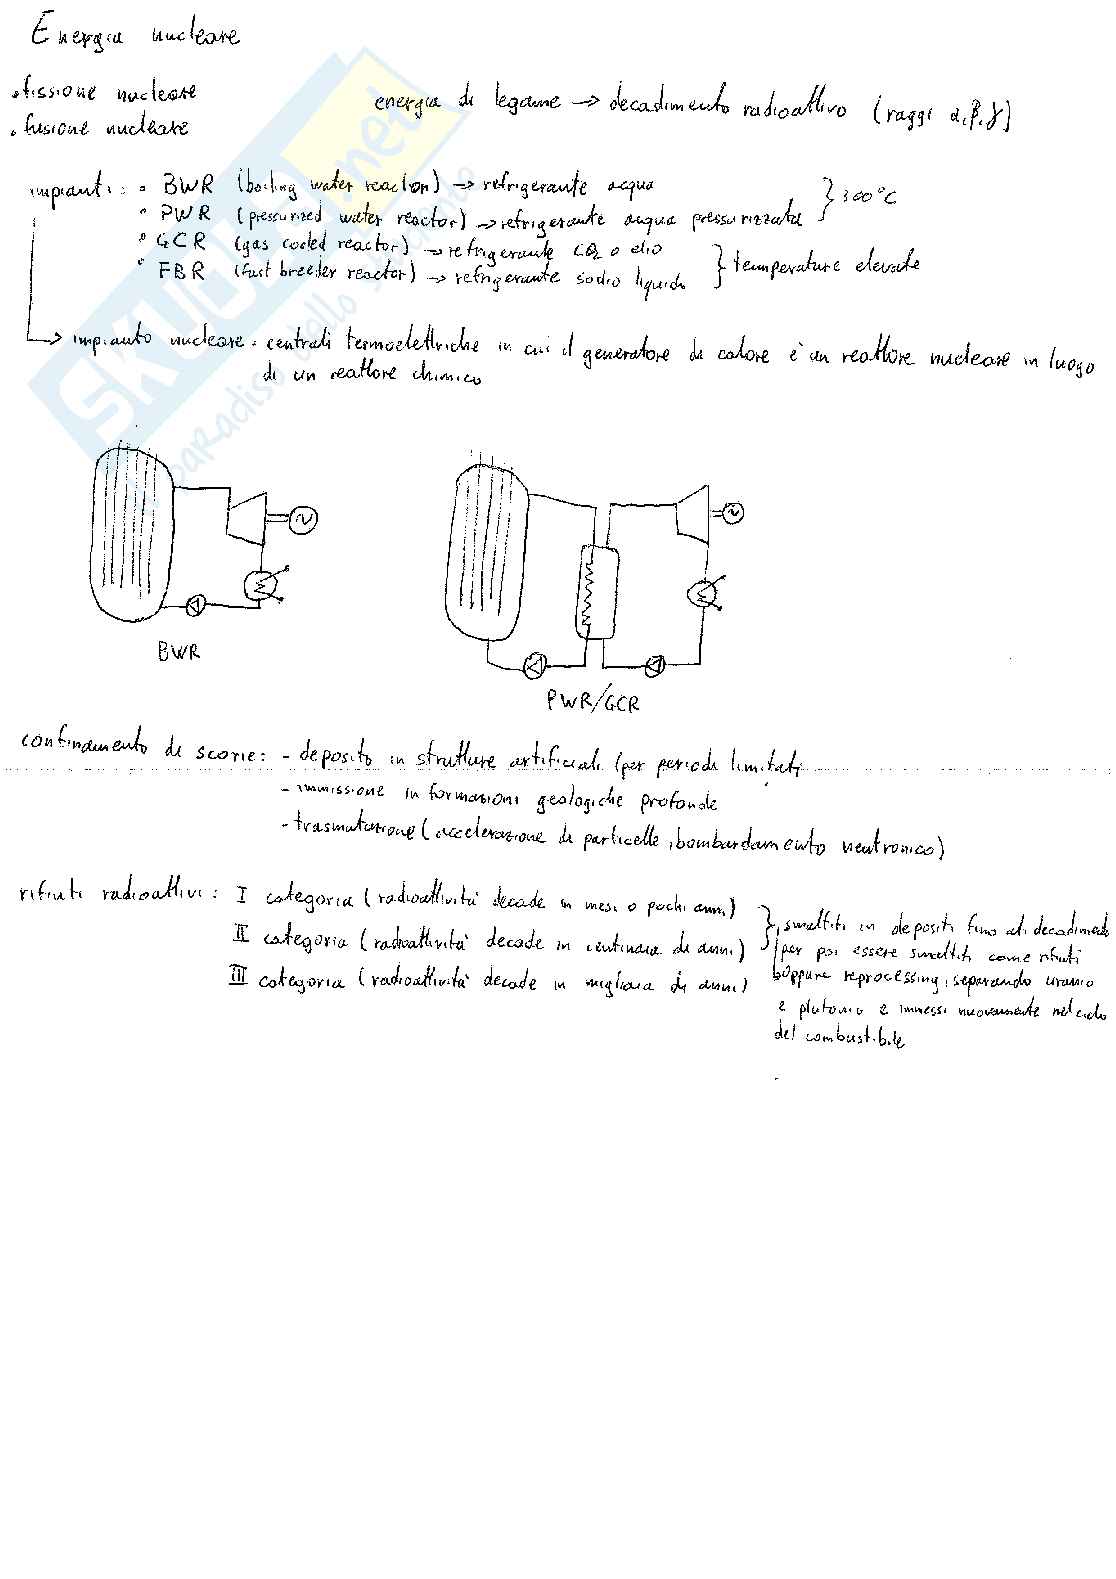 Energia nucleare
• fissione nucleare
• fusione nucleare
energia di legame → decadimento radioattivo (raggi α, β, γ)
impianti: • BWR (boiling water reactor) → refrigerante acqua
• PWR (pressurized water reactor) → refrigerante acqua pressurizzata } 300°C
• GCR (gas cooled reactor) → refrigerante CO2 o elio
• FBR (fast breeder reactor) → refrigerante sodio liquido } temperature elevate
→ impianto nucleare: centrali termoelettriche in cui il generatore di calore è un reattore nucleare in luogo
di un reattore chimico
BWR
PWR/GCR
confinamento di scorie: - deposito in strutture artificiali (per periodi limitati
- immissione in formazioni geologiche profonde
- trasmutazione (accelerazione di particelle, bombardamento neutronico)
rifiuti radioattivi: I categoria (radioattività decade in mesi o pochi anni)
II categoria (radioattività decade in centinaia di anni)
III categoria (radioattività decade in migliaia di anni)
smaltiti in depositi fino al decadimento
per poi essere smaltiti come rifiuti
oppure reprocessing, separando uranio
e plutonio e immessi nuovamente nel ciclo
del combustibile
SKUOLA.net
paradiso dello